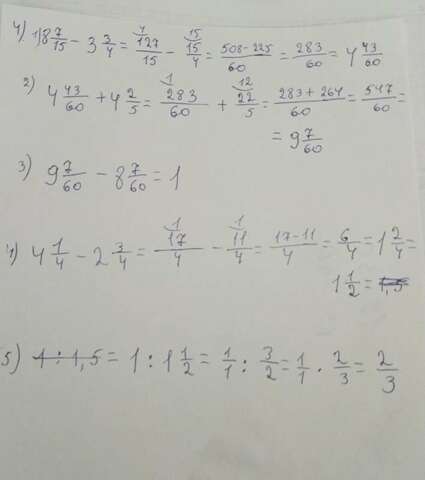 4) 1) 8 7/15 - 3 3/4 = 127/15 (4 - 15/4 (15 = 508-225/60 = 283/60 = 4 43/60
2) 4 43/60 + 4 2/5 = 283/60 (1 + 22/5 (12 = 283+264/60 = 547/60 =
= 9 7/60
3) 9 7/60 - 8 7/60 = 1
4) 4 1/4 - 2 3/4 = 17/4 (1 - 11/4 (1 = 17-11/4 = 6/4 = 1 2/4 =
1 1/2 = 1,5
5) 1 : 1,5 = 1 : 1 1/2 = 1/1 : 3/2 = 1/1 · 2/3 = 2/3